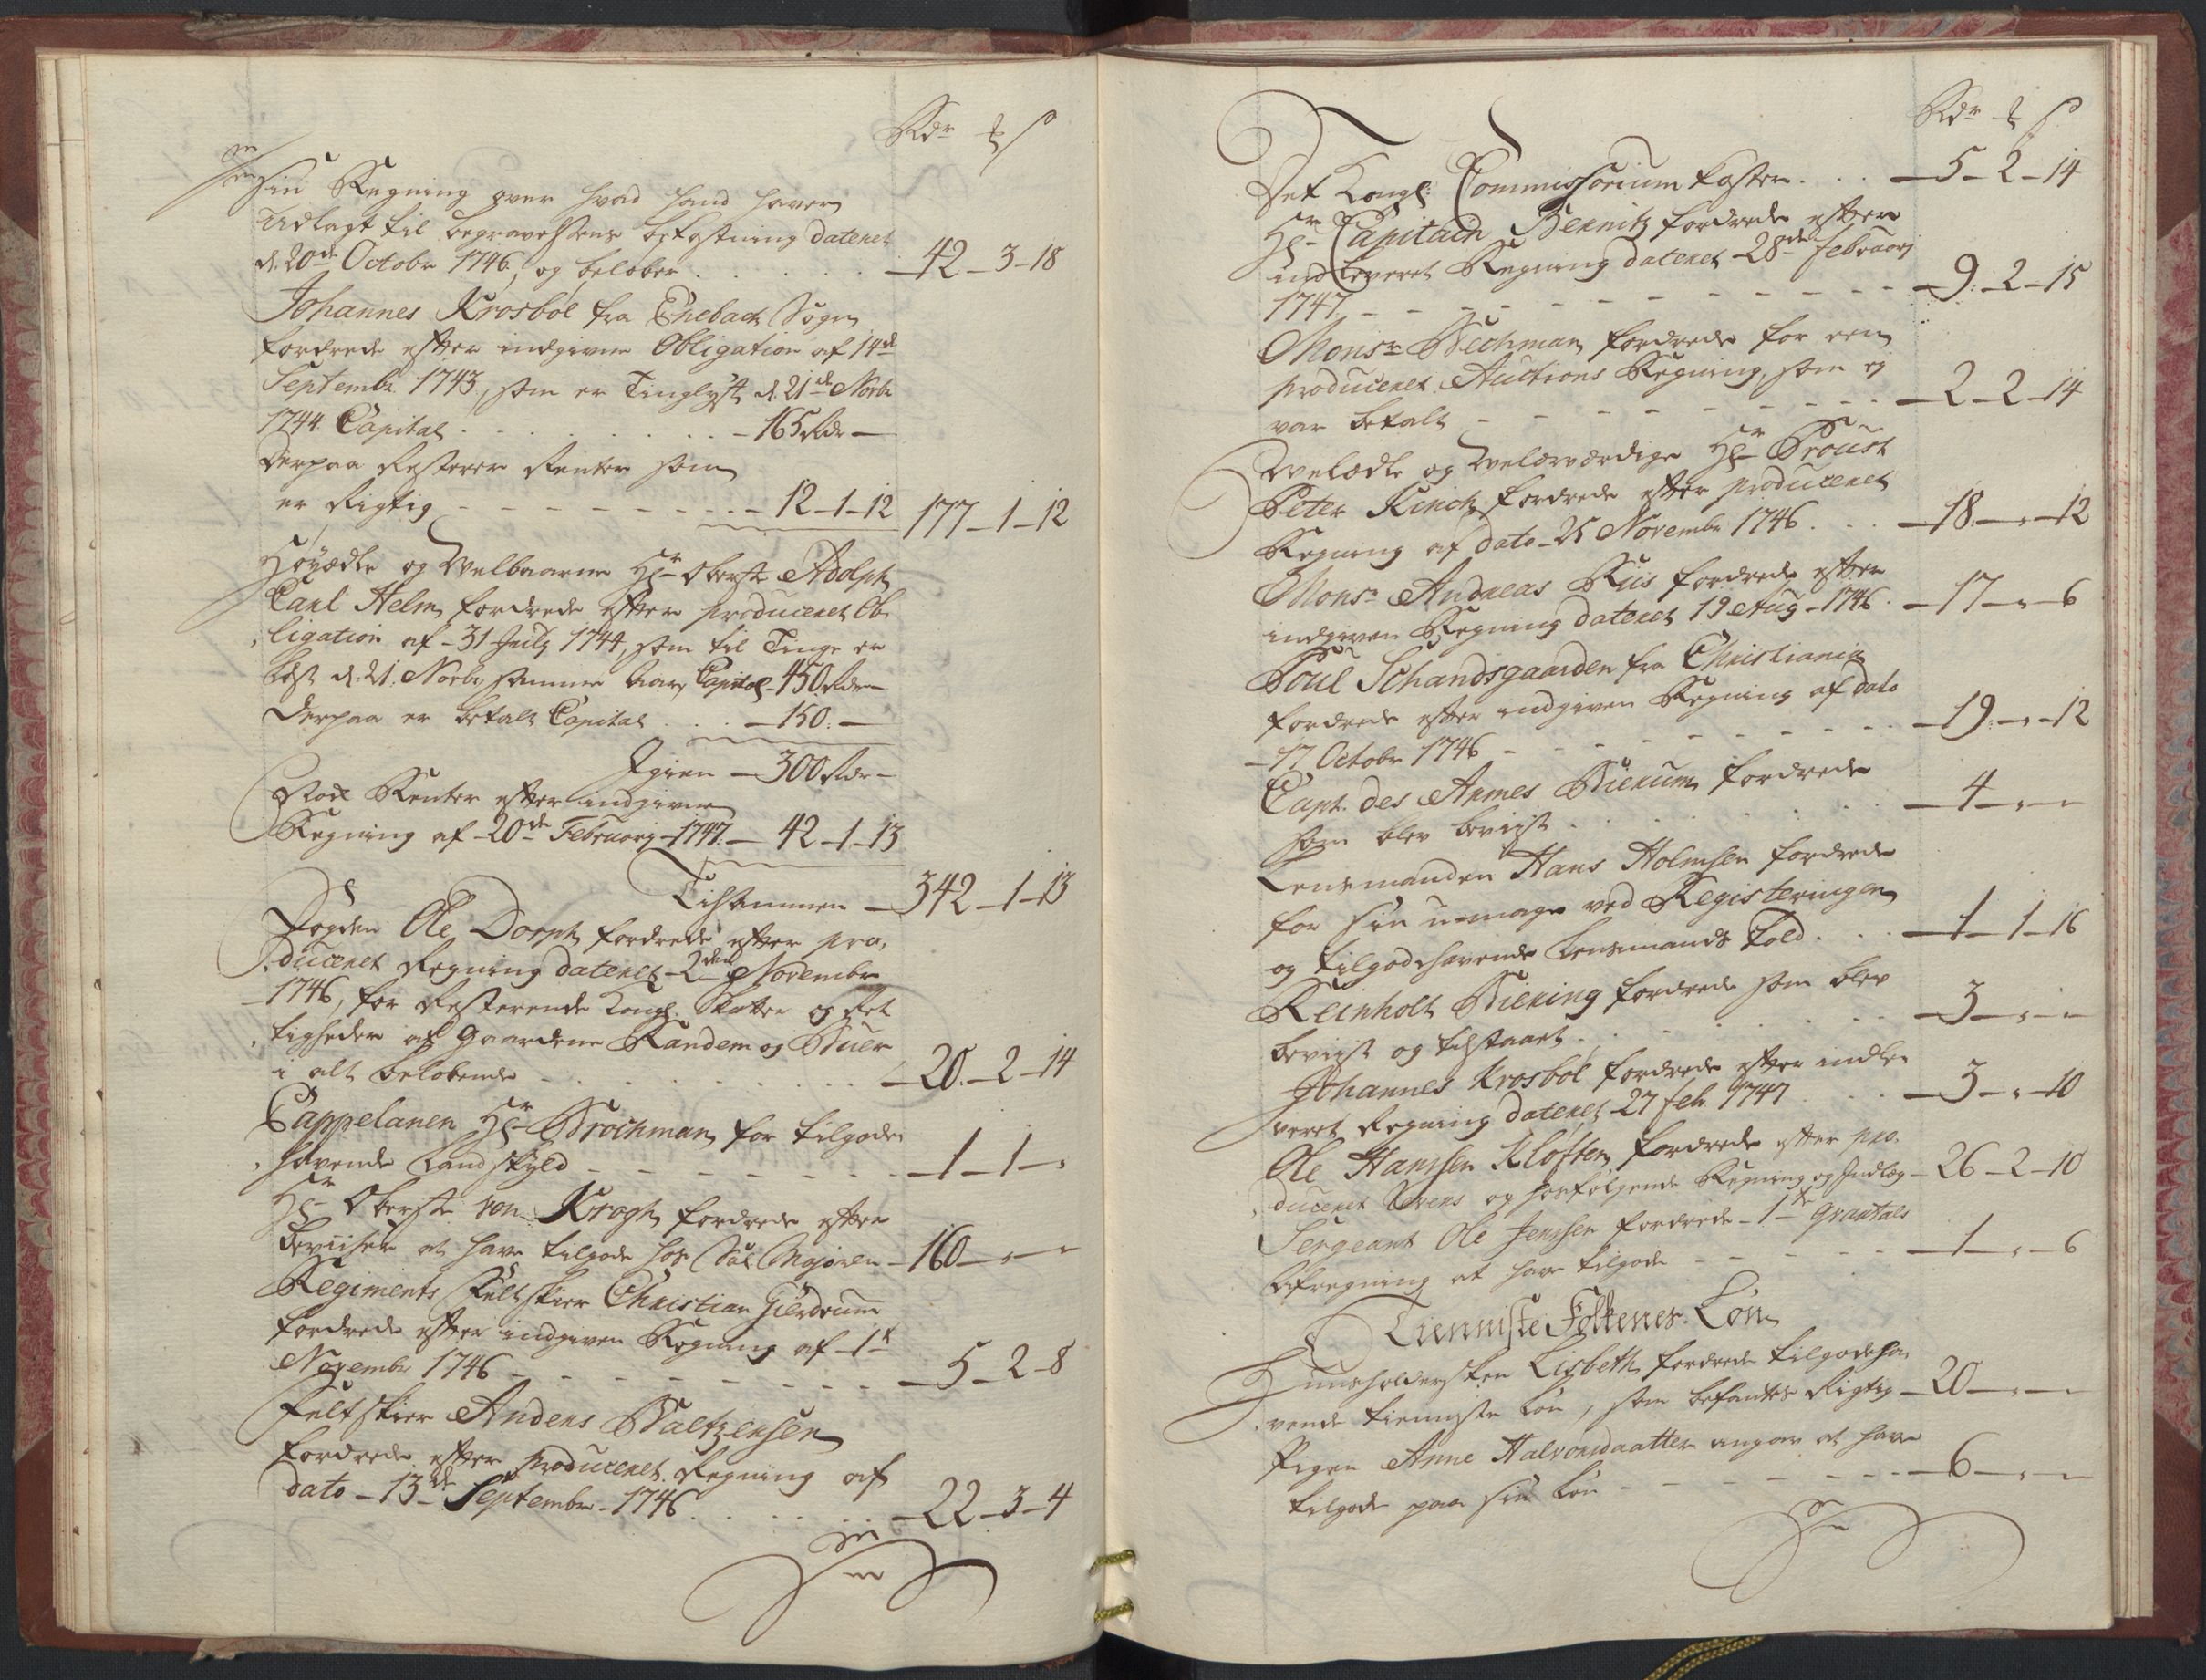 Rdr ℔ ß
Sin Regning over hvad hand haver
Udlagt til begravelsens bekostning dateret
d. 20de Octobr 1746, og beløber . . . . . 42-3-18
Johannes Krosbøl fra Enebach Sogn
fordrede efter indgivne Obligation af 14de
Septembr 1743, som er Tinglyst d. 21de Novbr
1744. Capital . . . . . . . - 165 Rdr -
Derpaa Resterer Renter som
er Rigtig - - - - - - - - 12-1-12 177-1-12
Høyædle og Velbaarne Hr Oberste Adolph
Carl Helm fordrede efter produceret Ob-
ligation af 31 July 1744, som til Tinge er
læst d. 21. Novbr samme Aar, Capital 450 Rdr -
Derpaa er betalt Capital . . . -150.-
Igien - 300 Rdr -
Nock Renter efter indgivne
Regning af 20de Februarij 1747 - 42-1-13
Tilsammen - 342-1-13
Fogden Ole Dorph fordrede efter pro-
duceret Regning dateret 2den Novembr
1746, for Resterende Kongl. Skatter og Ret-
tigheder af Gaardene Randem og Buer
i alt beløbende - . . . . . . 20-2-14
Cappelanen Hr Brochman for tilgode-
havende Landskyld - - - - - - 1-1-
Hr Oberste von Krogh fordrede efter
beviiser at have tilgode hos Sal. Majoren - 160-"-"
Regiments Feltskier Christian Gierdrum
fordrede efter indgiven Regning af 1te
Novembr 1746 - - - - - - - 5-2-8
Feltskier Anders Baltzersen
fordrede efter produceret Regning af
dato 13de Septembr 1746 . . . . . 22-3-4
Rdr ℔ ß
Det Kongl. Commissorium koster . . . 5-2-14
Hr Capitain Bernitz fordrede efter
indleveret Regning dateret 28de Februarij
1747 - - - - - - - - - - 9-2-15
Monsr Bechman fordrede for een
produceret Auctions Regning, som ej
var betalt - - - - - - - - 2-2-14
Velædle og Velærværdige Hr Proust
Peter Kinch fordrede efter produceret
Regning af dato 25 Novembr 1746 . . . 18-"-12
Monsr Andreas Riis fordrede efter
indgiven Regning dateret 19 Aug 1746 . 17-"-6
Poul Schandsgaarden fra Christiania
fordrede efter indgiven Regning af dato
17 Octobr 1746 - - - - - - - 19-"-12
Capt. des Armes Bierum fordrede
som blev beviist . . . . . . 4-"-"
Lensmanden Hans Holmsen fordrede
for sin umage ved Registeringen
og tilgodehavende Lensmands Told . . . 1-1-16
Reinholt Biering fordrede som blev
beviist og tilstaaet . . . . . . 3-"-"
Johannes Krosbøl fordrede efter indle-
veret Regning dateret 27 feb. 1747 . . 3-"-10
Ole Hanssen Kløften fordrede efter pro-
duceret Revers og hosfølgende Regning og Indlæg - 26-2-10
Sergeant Ole Jenssen fordrede 1te Qvartals
Afregning at have tilgode - - - - 1-"-6
Tienniste Folkenes Løn
Huusholdersken Lisbeth fordrede tilgodeha-
vende tienniste Løn, som befantes Rigtig - 20-"-"
Pigen Anne Halvorsdaatter angav at have
tilgode paa sin Løn - - - - - - 6-"-"